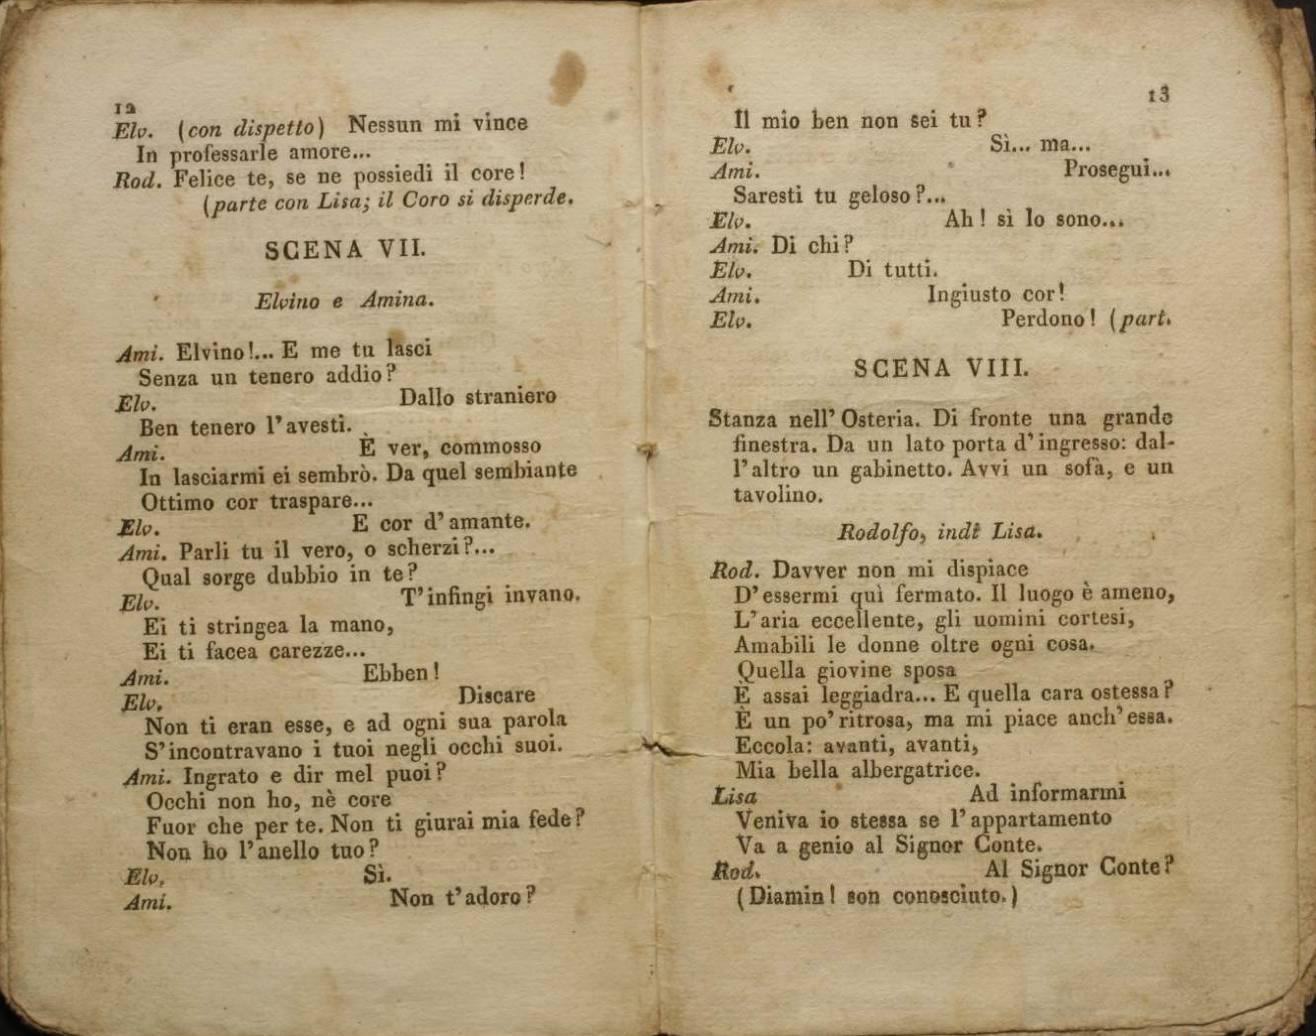 12
Elv. (con dispetto) Nessun mi vince
In professarle amore...
Rod. Felice te, se ne possiedi il core!
(parte con Lisa; il Coro si disperde.
SCENA VII.
Elvino e Amina.
Ami. Elvino!... E me tu lasci
Senza un tenero addio?
Elv. Dallo straniero
Ben tenero l'avesti.
Ami. È ver, commosso
In lasciarmi ei sembrò. Da quel sembiante
Ottimo cor traspare...
Elv. E cor d'amante.
Ami. Parli tu il vero, o scherzi?...
Qual sorge dubbio in te?
Elv. T'infingi invano.
Ei ti stringea la mano,
Ei ti facea carezze...
Ami. Ebben!
Elv. Discare
Non ti eran esse, e ad ogni sua parola
S'incontravano i tuoi negli occhi suoi.
Ami. Ingrato e dir mel puoi?
Occhi non ho, nè core
Fuor che per te. Non ti giurai mia fede?
Non ho l'anello tuo?
Elv. Sì.
Ami. Non t'adoro?
13
Il mio ben non sei tu?
Elv. Sì... ma...
Ami. Prosegui...
Saresti tu geloso?...
Elv. Ah! sì lo sono...
Ami. Di chi?
Elv. Di tutti.
Ami. Ingiusto cor!
Elv. Perdono! (part.
SCENA VIII.
Stanza nell'Osteria. Di fronte una grande
finestra. Da un lato porta d'ingresso: dal-
l'altro un gabinetto. Avvi un sofà, e un
tavolino.
Rodolfo, indi Lisa.
Rod. Davver non mi dispiace
D'essermi quì fermato. Il luogo è ameno,
L'aria eccellente, gli uomini cortesi,
Amabili le donne oltre ogni cosa.
Quella giovine sposa
È assai leggiadra... E quella cara ostessa?
È un po' ritrosa, ma mi piace anch'essa.
Eccola: avanti, avanti,
Mia bella albergatrice.
Lisa Ad informarmi
Veniva io stessa se l'appartamento
Va a genio al Signor Conte.
Rod. Al Signor Conte?
(Diamin! son conosciuto.)